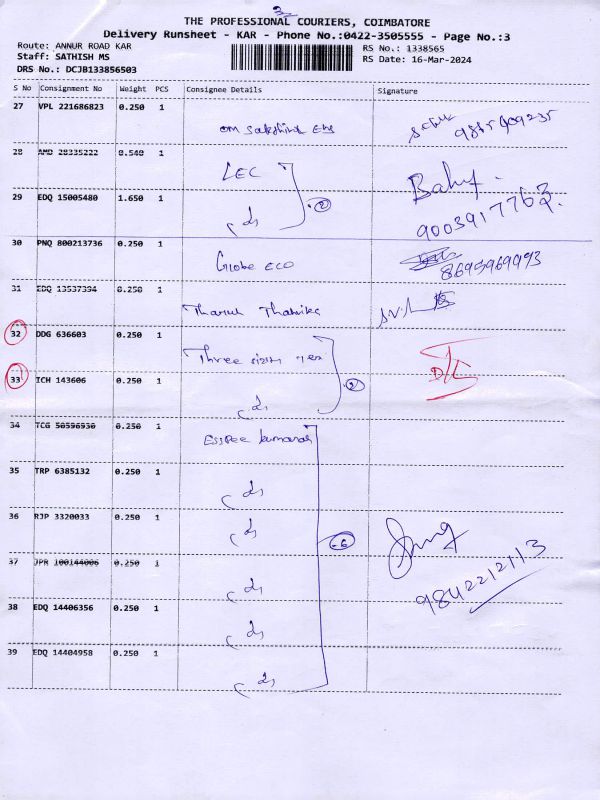 3
THE PROFESSIONAL COURIERS, COIMBATORE
Delivery Runsheet - KAR - Phone No.:0422-3505555 - Page No.:3
Route: ANNUR ROAD KAR
RS No.: 1338565
Staff: SATHISH MS
RS Date: 16-Mar-2024
DRS No.: DCJB133856503
S No Consignment No Weight PCS Consignee Details Signature
27 VPL 221686823 0.250 1
om Sakthivel Ens
9865909235
28 AMD 28335222 0.540 1
LEC
Baluf.
29 EDQ 15005480 1.650 1
2
9003917763
30 PNQ 800213736 0.250 1
Globe ECO
8695969993
31 EDQ 13537394 0.250 1
32 DDG 636603 0.250 1
Three
33 ICH 143606 0.250 1
2
34 TCG 50596930 0.250 1
EssPee kumaran
35 TRP 6385132 0.250 1
36 RJP 3320033 0.250 1
6
37 JPR 100144006 0.250 1
9842212113
38 EDQ 14406356 0.250 1
39 EDQ 14404958 0.250 1